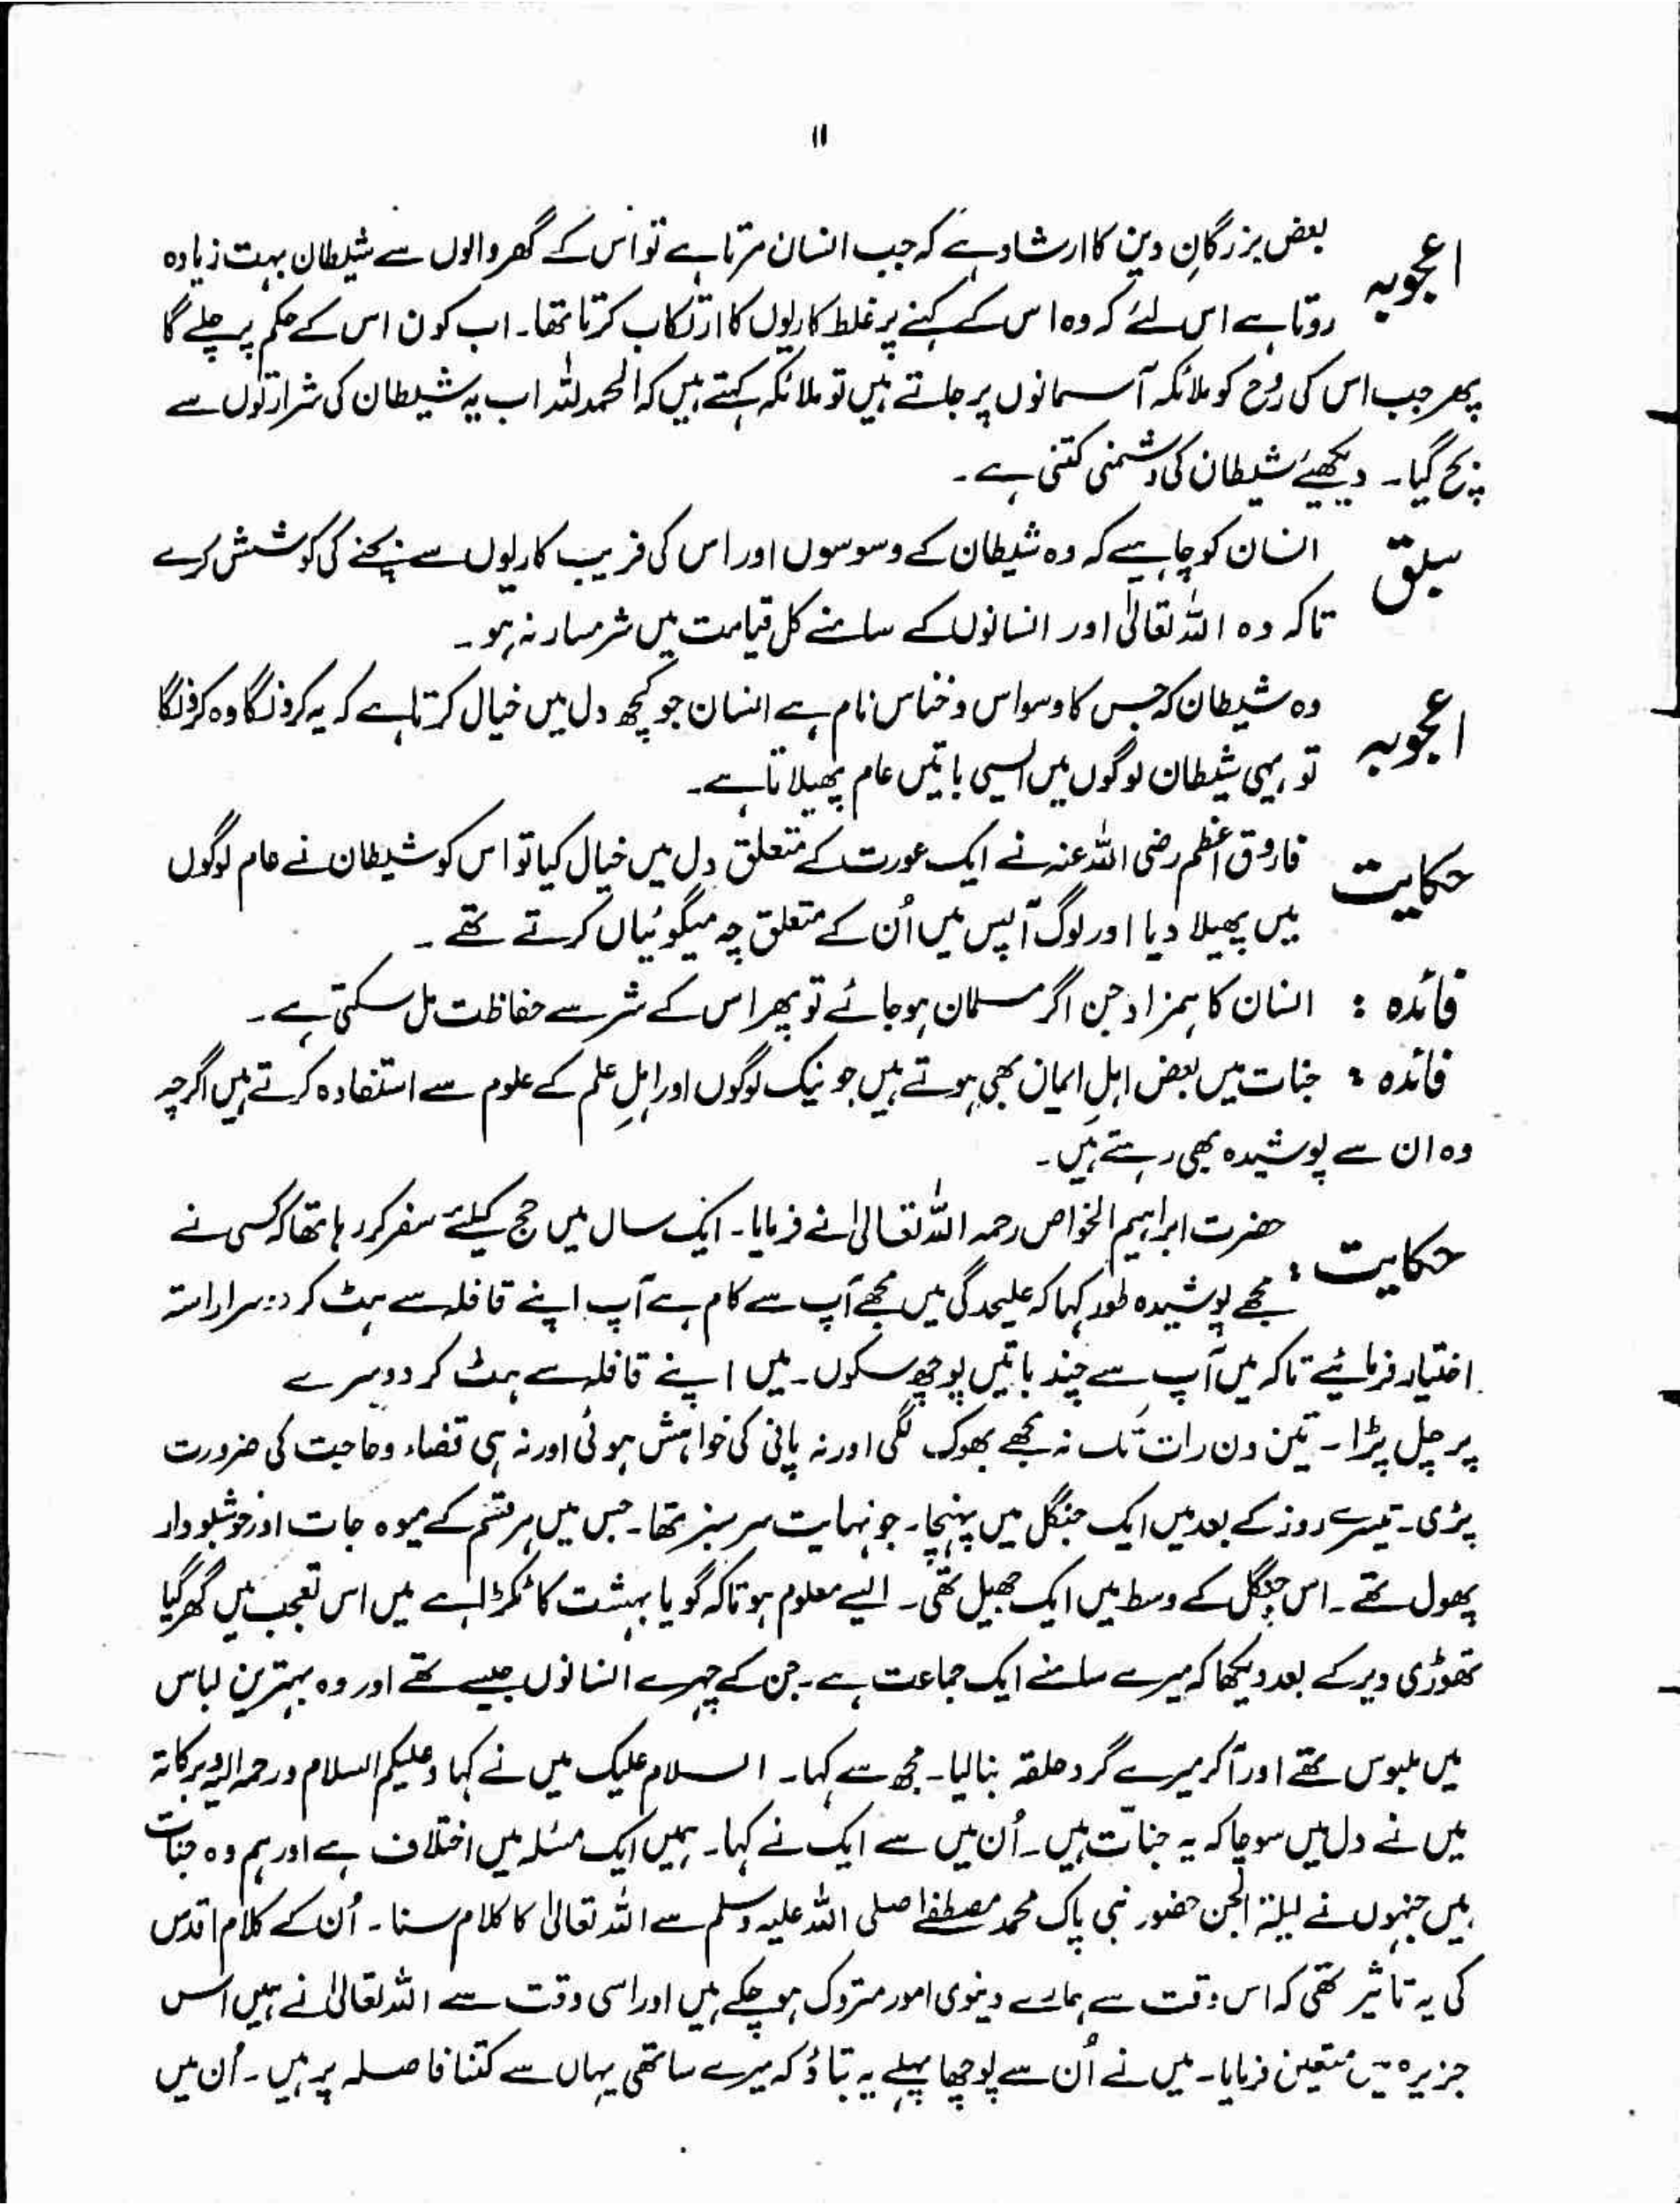 ۱۱
اعجوبہ بعض بزرگانِ دین کا ارشاد ہے کہ جب انسان مرتا ہے تو اس کے گھر والوں سے شیطان بہت زیادہ
روتا ہے اس لئے کہ وہ اس کے کہنے پر غلط کاریوں کا ارتکاب کرتا تھا۔ اب کون اس کے حکم پر چلے گا
پھر جب اس کی روح کو ملائکہ آسمانوں پر جاتے ہیں تو ملائکہ کہتے ہیں کہ الحمدللہ اب یہ شیطان کی شرارتوں سے
بچ گیا۔ دیکھیئے شیطان کی دشمنی کتنی ہے۔
سبق انسان کو چاہیے کہ وہ شیطان کے وسوسوں اور اس کی فریب کاریوں سے بچنے کی کوشش کرے
تاکہ وہ اللہ تعالیٰ اور انسانوں کے سامنے کل قیامت میں شرمسار نہ ہو۔
اعجوبہ وہ شیطان کہ جس کا وسواس و خناس نام ہے انسان جو کچھ دل میں خیال کرتا ہے کہ یہ کرونگا وہ کرونگا
تو یہی شیطان لوگوں میں ایسی باتیں عام پھیلاتا ہے۔
حکایت فاروق اعظم رضی اللہ عنہ نے ایک عورت کے متعلق دل میں خیال کیا تو اس کو شیطان نے عام لوگوں
میں پھیلا دیا اور لوگ آپس میں اُن کے متعلق چہ میگوئیاں کرتے تھے۔
فائدہ : انسان کا ہمزاد جن اگر مسلمان ہو جائے تو پھر اس کے شر سے حفاظت مل سکتی ہے۔
فائدہ : جنات میں بعض اہلِ ایمان بھی ہوتے ہیں جو نیک لوگوں اور اہلِ علم کے علوم سے استفادہ کرتے ہیں اگرچہ
وہ ان سے پوشیدہ بھی رہتے ہیں۔
حکایت : حضرت ابراہیم الخواص رحمہ اللہ تعالیٰ نے فرمایا۔ ایک سال میں حج کیلئے سفر کر رہا تھا کہ کسی نے
مجھے پوشیدہ طور کہا کہ علیحدگی میں مجھے آپ سے کام ہے آپ اپنے قافلہ سے ہٹ کر دوسرا راستہ
اختیار فرمائیے تاکہ میں آپ سے چند باتیں پوچھ سکوں۔ میں اپنے قافلہ سے ہٹ کر دوسرے
پر چل پڑا۔ تین دن رات تک نہ مجھے بھوک لگی اور نہ پانی کی خواہش ہوئی اور نہ ہی قضاء و حاجت کی ضرورت
پڑی۔ تیسرے روز کے بعد میں ایک جنگل میں پہنچا۔ جو نہایت سرسبز تھا۔ جس میں ہر قسم کے میوہ جات اور خوشبودار
پھول تھے۔ اس جنگل کے وسط میں ایک جھیل تھی۔ ایسے معلوم ہوتا کہ گویا بہشت کا ٹکڑا ہے میں اس تعجب میں گھر گیا
تھوڑی دیر کے بعد دیکھا کہ میرے سامنے ایک جماعت ہے۔ جن کے چہرے انسانوں جیسے تھے اور وہ بہترین لباس
میں ملبوس تھے اور آکر میرے گرد حلقہ بنا لیا۔ مجھ سے کہا۔ السلام علیک میں نے کہا وعلیکم السلام ورحمۃ اللہ وبرکاتہ
میں نے دل میں سوچا کہ یہ جنات ہیں۔ اُن میں سے ایک نے کہا۔ ہمیں ایک مسئلہ میں اختلاف ہے اور ہم وہ جنات
ہیں جنہوں نے لیلۃ الجن حضور نبی پاک محمد مصطفےٰ صلی اللہ علیہ وسلم سے اللہ تعالیٰ کا کلام سنا۔ اُن کے کلام اقدس
کی یہ تاثیر تھی کہ اس وقت سے ہمارے دنیوی امور متروک ہو چکے ہیں اور اسی وقت سے اللہ تعالیٰ نے ہمیں اس
جزیرہ میں متعین فرمایا۔ میں نے اُن سے پوچھا پہلے یہ بتاؤ کہ میرے ساتھی یہاں سے کتنا فاصلہ پر ہیں۔ اُن میں